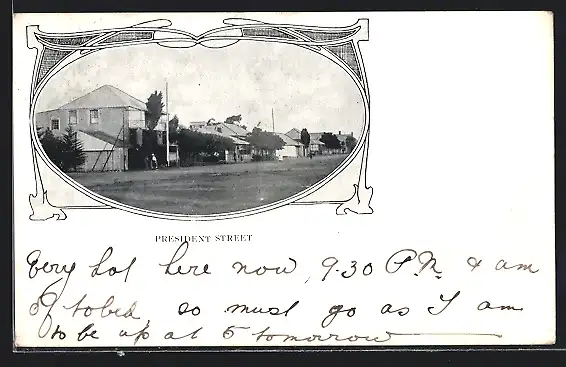 PRESIDENT STREET
Very hot here now, 9.30 P.M. & am
off to bed, so must go as I am
to be up at 5 tomorrow